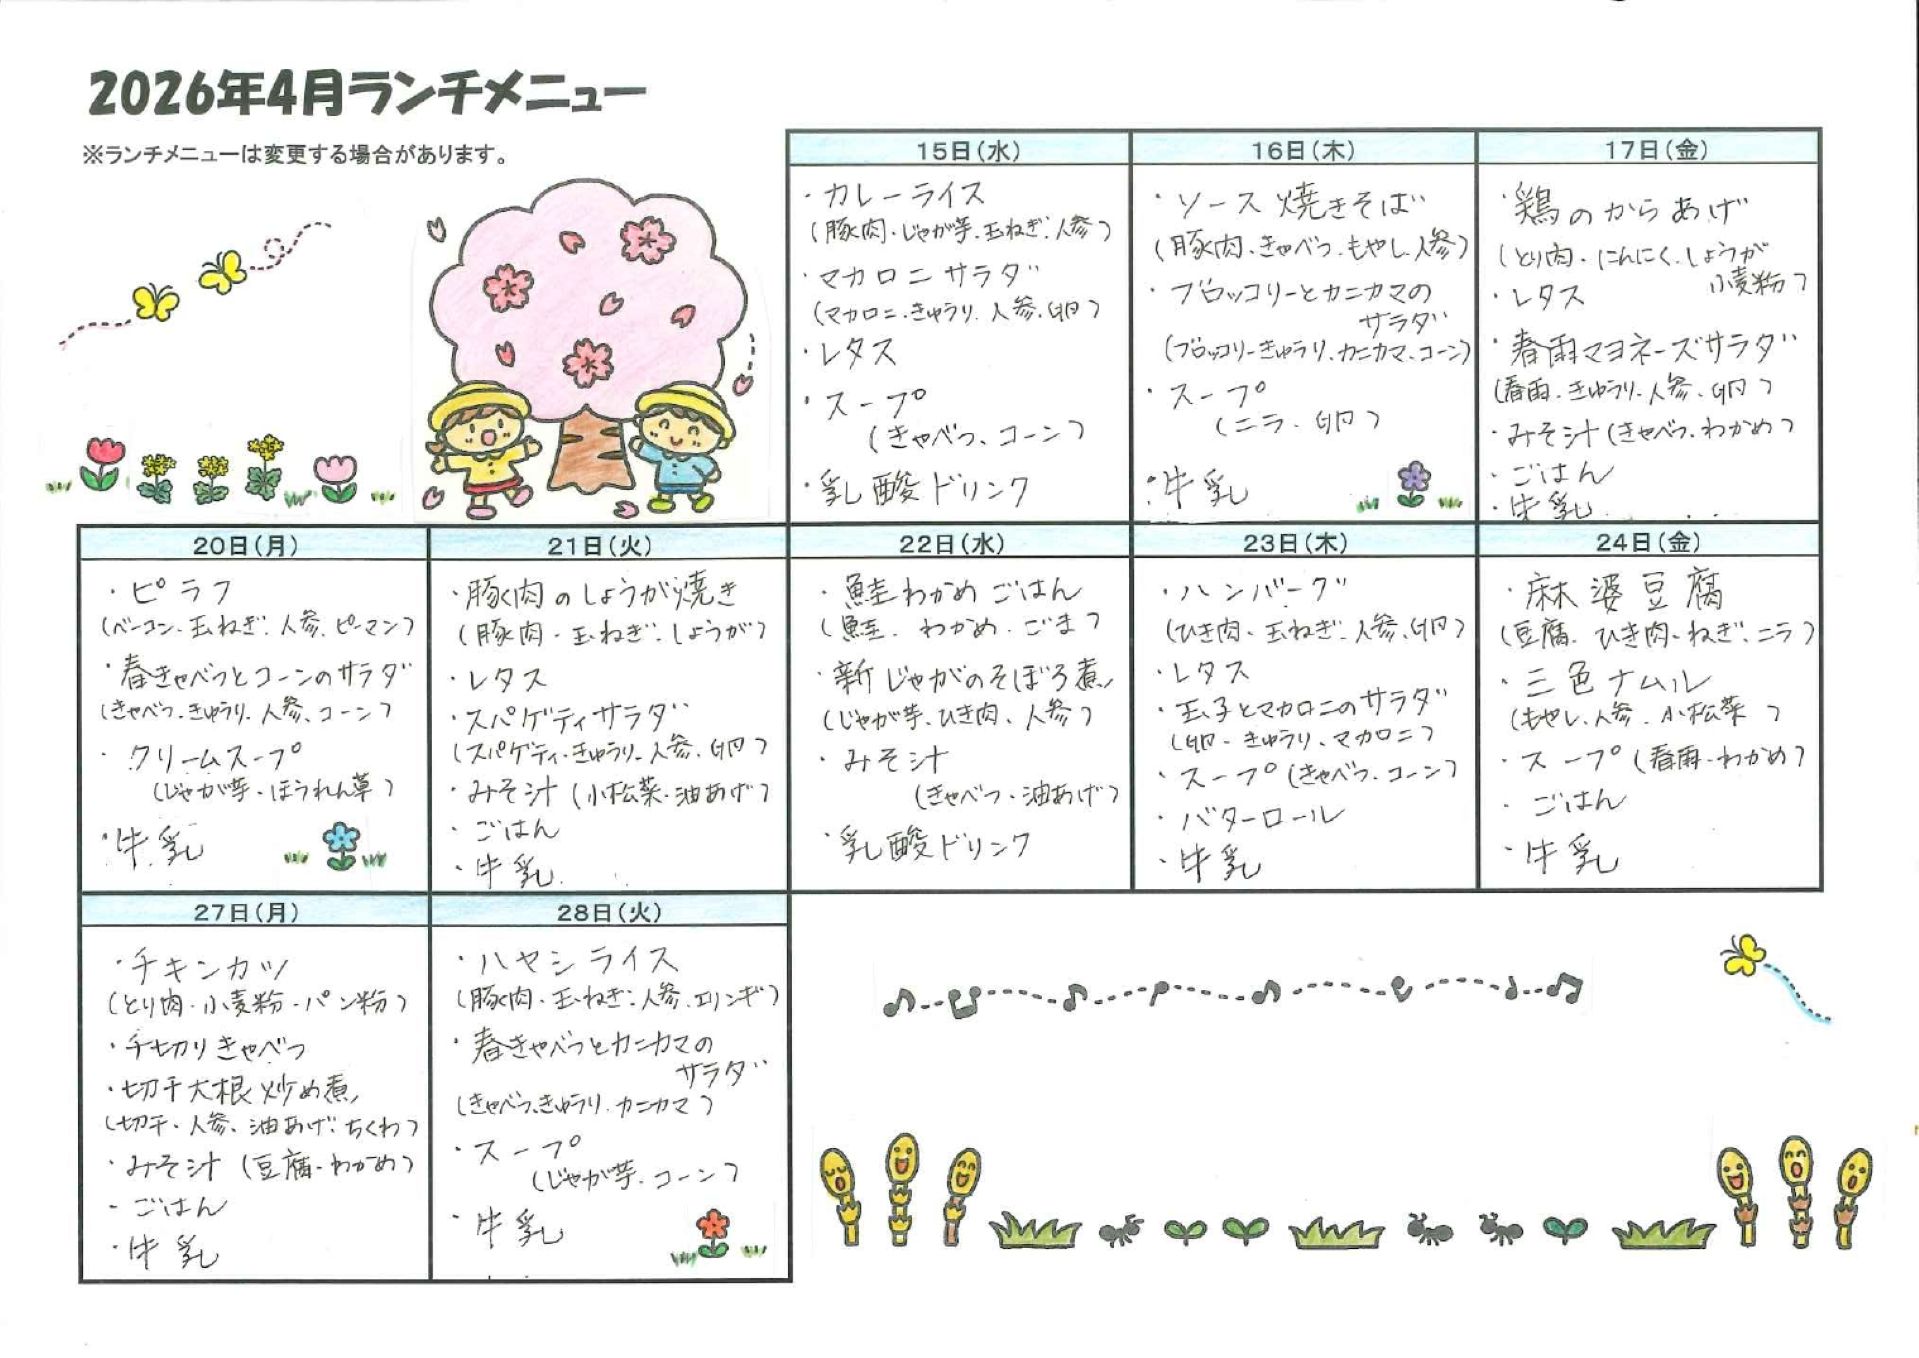 2026年4月ランチメニュー
※ランチメニューは変更する場合があります。
15日(水)
・カレーライス
(豚肉・じゃが芋・玉ねぎ・人参)
・マカロニサラダ
(マカロニ・きゅうり・人参・卵)
・レタス
・スープ
(きゃべつ、コーン)
・乳酸ドリンク
16日(木)
・ソース焼きそば
(豚肉・きゃべつ・もやし・人参)
・ブロッコリーとカニカマの
サラダ
(ブロッコリー・きゅうり、カニカマ、コーン)
・スープ
(ニラ・卵)
・牛乳
17日(金)
・鶏のからあげ
(とり肉・にんにく・しょうが
小麦粉)
・レタス
・春雨マヨネーズサラダ
(春雨・きゅうり・人参・卵)
・みそ汁(きゃべつ・わかめ)
・ごはん
・牛乳
20日(月)
・ピラフ
(ベーコン・玉ねぎ・人参・ピーマン)
・春きゃべつとコーンのサラダ
(きゃべつ・きゅうり・人参、コーン)
・クリームスープ
(じゃが芋・ほうれん草)
・牛乳
21日(火)
・豚肉のしょうが焼き
(豚肉・玉ねぎ・しょうが)
・レタス
・スパゲティサラダ
(スパゲティ・きゅうり・人参・卵)
・みそ汁(小松菜・油あげ)
・ごはん
・牛乳
22日(水)
・鮭わかめごはん
(鮭・わかめ・ごま)
・新じゃがのそぼろ煮
(じゃが芋・ひき肉、人参)
・みそ汁
(きゃべつ・油あげ)
・乳酸ドリンク
23日(木)
・ハンバーグ
(ひき肉・玉ねぎ・人参・卵)
・レタス
・玉子とマカロニのサラダ
(卵・きゅうり、マカロニ)
・スープ(きゃべつ・コーン)
・バターロール
・牛乳
24日(金)
・麻婆豆腐
(豆腐・ひき肉・ねぎ・ニラ)
・三色ナムル
(もやし・人参・小松菜)
・スープ(春雨・わかめ)
・ごはん
・牛乳
27日(月)
・チキンカツ
(とり肉・小麦粉・パン粉)
・千切りきゃべつ
・切干大根炒め煮
(切干・人参・油あげ・ちくわ)
・みそ汁(豆腐・わかめ)
・ごはん
・牛乳
28日(火)
・ハヤシライス
(豚肉・玉ねぎ・人参・エリンギ)
・春きゃべつとカニカマの
サラダ
(きゃべつ、きゅうり・カニカマ)
・スープ
(じゃが芋・コーン)
・牛乳